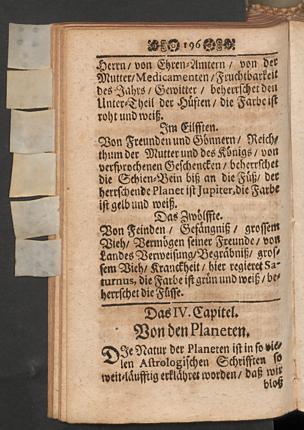 196
Herrn/ von Ehren-Amtern/ von der
Mutter/Medicamenten/Fruchtbarkeit
des Jahrs/ Gewitter/ beherrschet den
Unter-Theil der Hüfften/ die Farbe ist
roht und weiß.
Im Eilfften.
Von Freunden und Gönnern/ Reich-
thum der Mutter und des Königs/ von
versprochenen Geschencken/ beherrschet
die Schien-Bein biß an die Füß/ der
herrschende Planet ist Jupiter, die Farbe
ist gelb und weiß.
Das Zwölffte.
Von Feinden/ Gefängniß/ grossem
Vieh/ Vermögen seiner Freunde/ von
Landes Verweisung/Begräbniß/ gros-
sem Vieh/ Kranckheit/ hier regieret Sa-
turnus, die Farbe ist grün und weiß/ be-
herrschet die Füsse.
Das IV. Capitel.
Von den Planeten.
DIe Natur der Planeten ist in so vie-
len Astrologischen Schrifften so
weit-läufftig erklähret worden/ daß wir
bloß